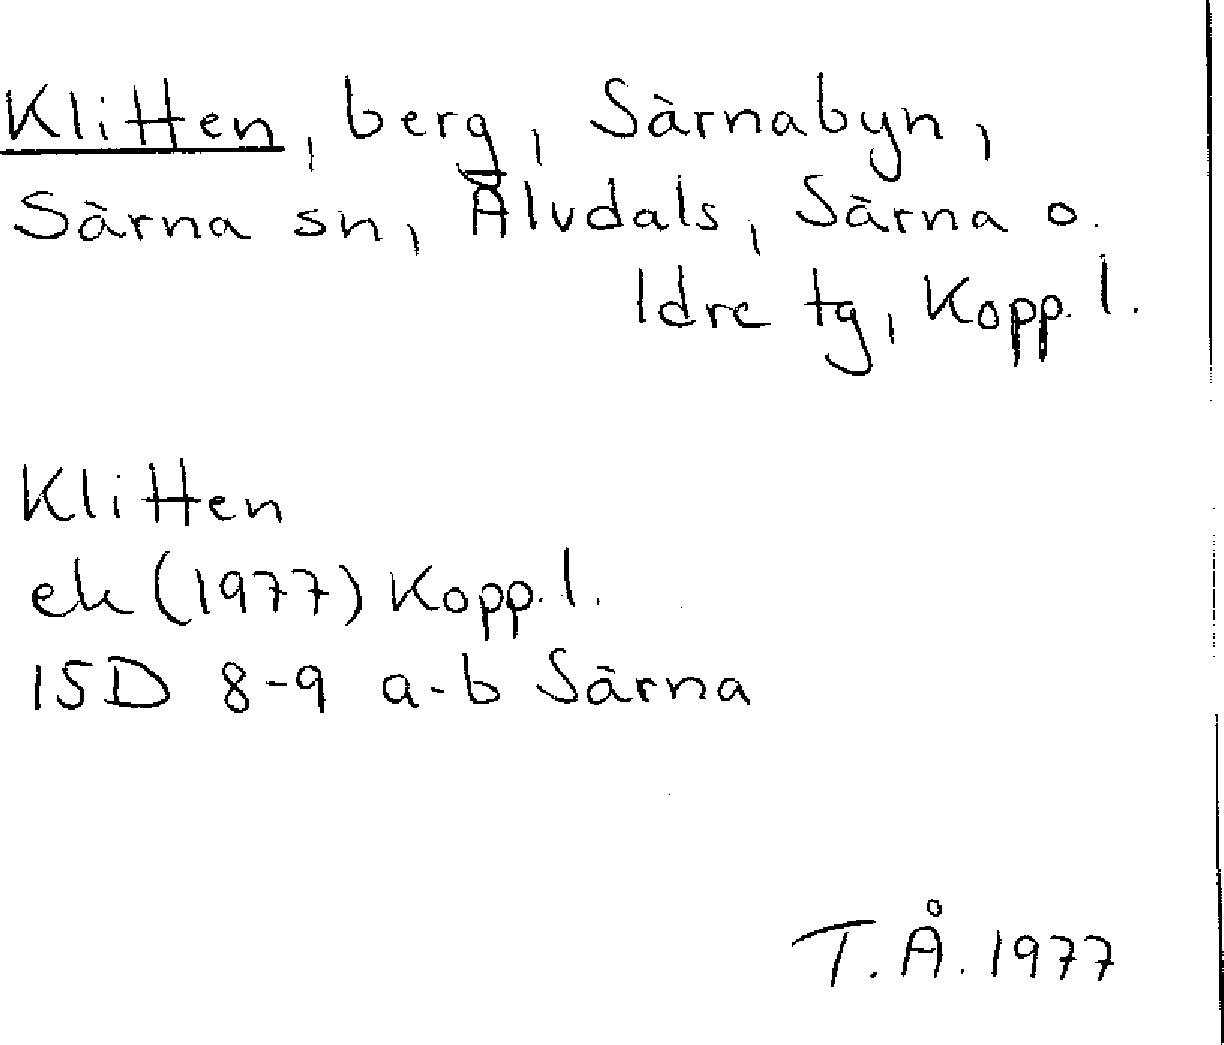 Klitten, berg, Särnabyn,
Särna sn, Älvdals, Särna o.
Idre tg, Kopp. l.
Klitten
ek (1977) Kopp. l.
15D 8-9 a-b Särna
T.Å. 1977